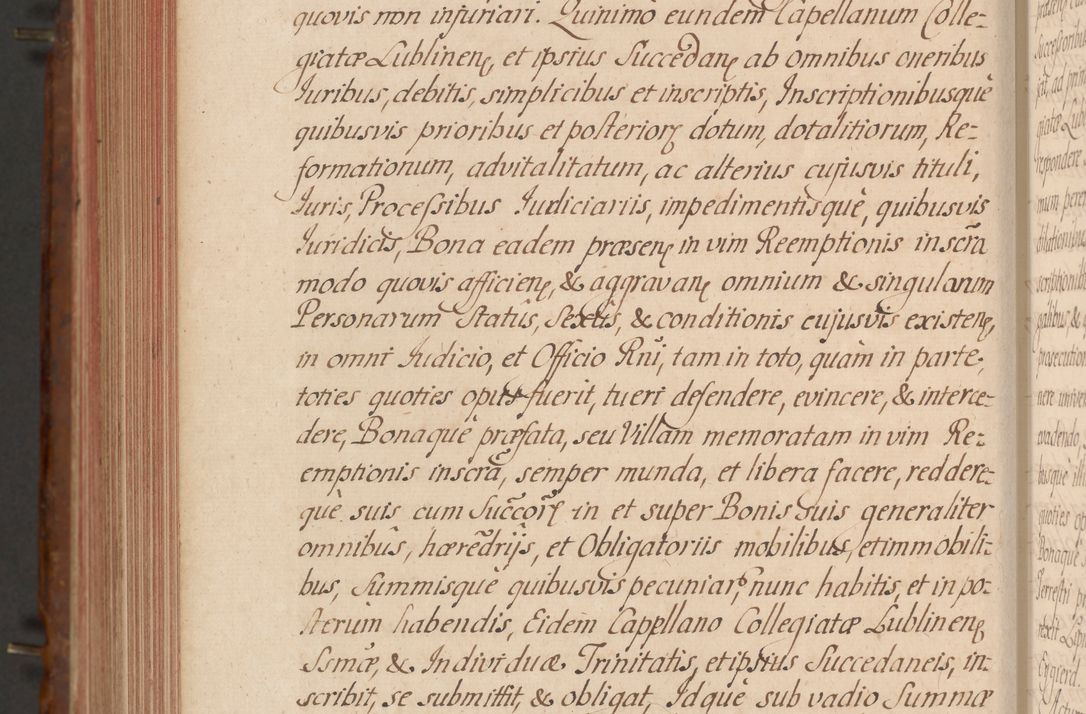 quovis non injuriari. Quinimo eundem Capellanum Colle=
giatæ Lublinenę, et ipsius Succedanę ab omnibus oneribus
Iuribus, debitis, simplicibus et inscriptis, Inscriptionibusquè
quibusvis prioribus et posteriorę dotum, dotalitiorum, Re=
formationum, advitalitatum, ac alterius cujusvis tituli,
Iuris, Processibus Iudiciariis, impedimentisquè, quibusvis
Iuridicis, Bona eadem præsenę in vim Reemptionis inscrã
modo quovis afficienę, & aggravanę omnium & singularum
Personarum Statûs, Sexûs, & conditionis cujusvis existenę,
in omni Iudicio, et Officio Rñi, tam in toto, quàm in parte,
toties quoties opus fuerit, tueri defendere, evincere, & interce=
dere, Bonaquè præfata, seu Villam memoratam in vim Re=
emptionis inscrã, semper munda, et libera facere, reddere=
què suis cum Succorę in et super Bonis suis generaliter
omnibus, hæredrijs, et Obligatoriis mobilibus, et immobili=
bus, Summisquè quibusvis pecuniarę, nunc habitis, et in po=
sterùm habendis, Eidem Cappellano Collegiatæ Lublinenę
Ssmæ, & Individuæ Trinitatis, et ipsius Succedaneis, in=
scribit, se submittit, & obligat, Idquè sub vadio Summæ